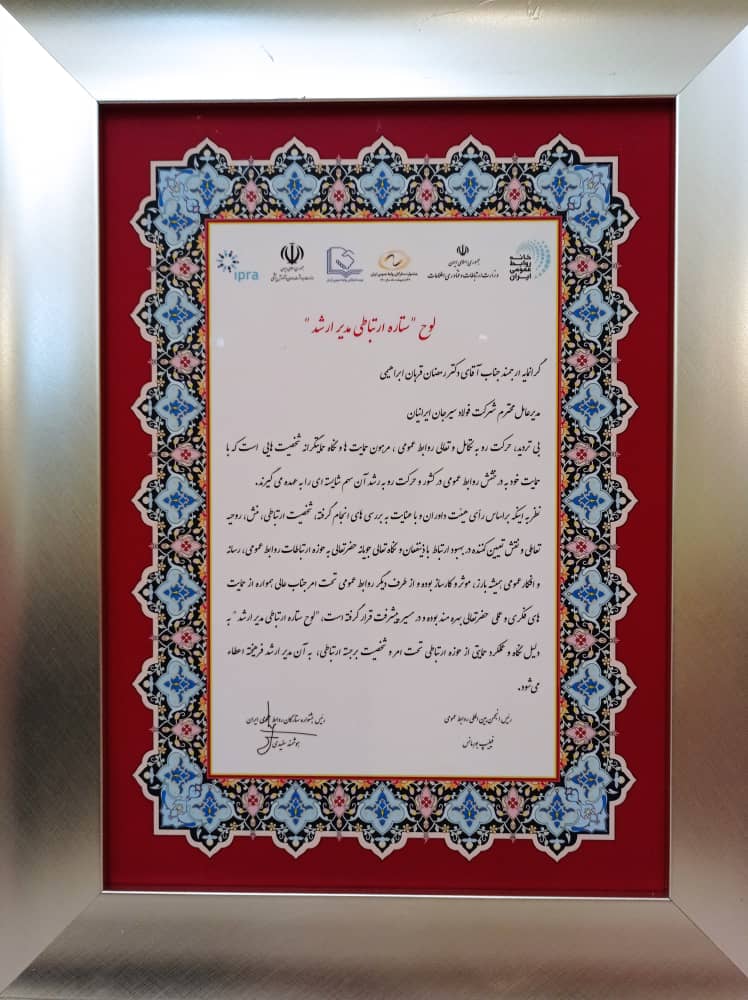 خانه روابط عمومی ایران
جمهوری اسلامی ایران
وزارت ارتباطات و فناوری اطلاعات
جمهوری اسلامی ایران
ipra
لوح "ستاره ارتباطی مدیر ارشد"
گرانمایه ارجمند جناب آقای دکتر رمضان قربان ابراهیمی
مدیرعامل محترم شرکت فولاد سیرجان ایرانیان
بی تردید، حرکت رو به تکامل و تعالی روابط عمومی ، مرهون حمایت ها و نگاه حمایتگرانه شخصیت هایی است که با
حمایت خود به در جنبش روابط عمومی در کشور و حرکت رو به رشد آن سهم شایسته ای را به عهده می گیرند.
نظر به اینکه براساس رأی هیئت داوران و با عنایت به بررسی های انجام گرفته، شخصیت ارتباطی، منش، روحیه
تعاملی و نقش تعیین کننده در بهبود ارتباط با ذینفعان و نگاه تعالی جویانه حضرتعالی به حوزه ارتباطات روابط عمومی، رسانه
و افکار عمومی همیشه بارز، موثر و کارساز بوده و از طرف دیگر روابط عمومی تحت امر جناب عالی همواره از حمایت
های فکری و عملی حضرتعالی بهره مند بوده و در مسیر پیشرفت قرار گرفته است، "لوح ستاره ارتباطی مدیر ارشد" به
دلیل نگاه و عملکرد حمایتی از حوزه ارتباطی تحت امر و شخصیت برجسته ارتباطی، به آن مدیر ارشد فرهیخته اعطاء
می شود.
رئیس انجمن بین المللی روابط عمومی
فیلیپ بورمانس
رئیس جشنواره ستارگان روابط عمومی ایران
هوشمند سفیدی